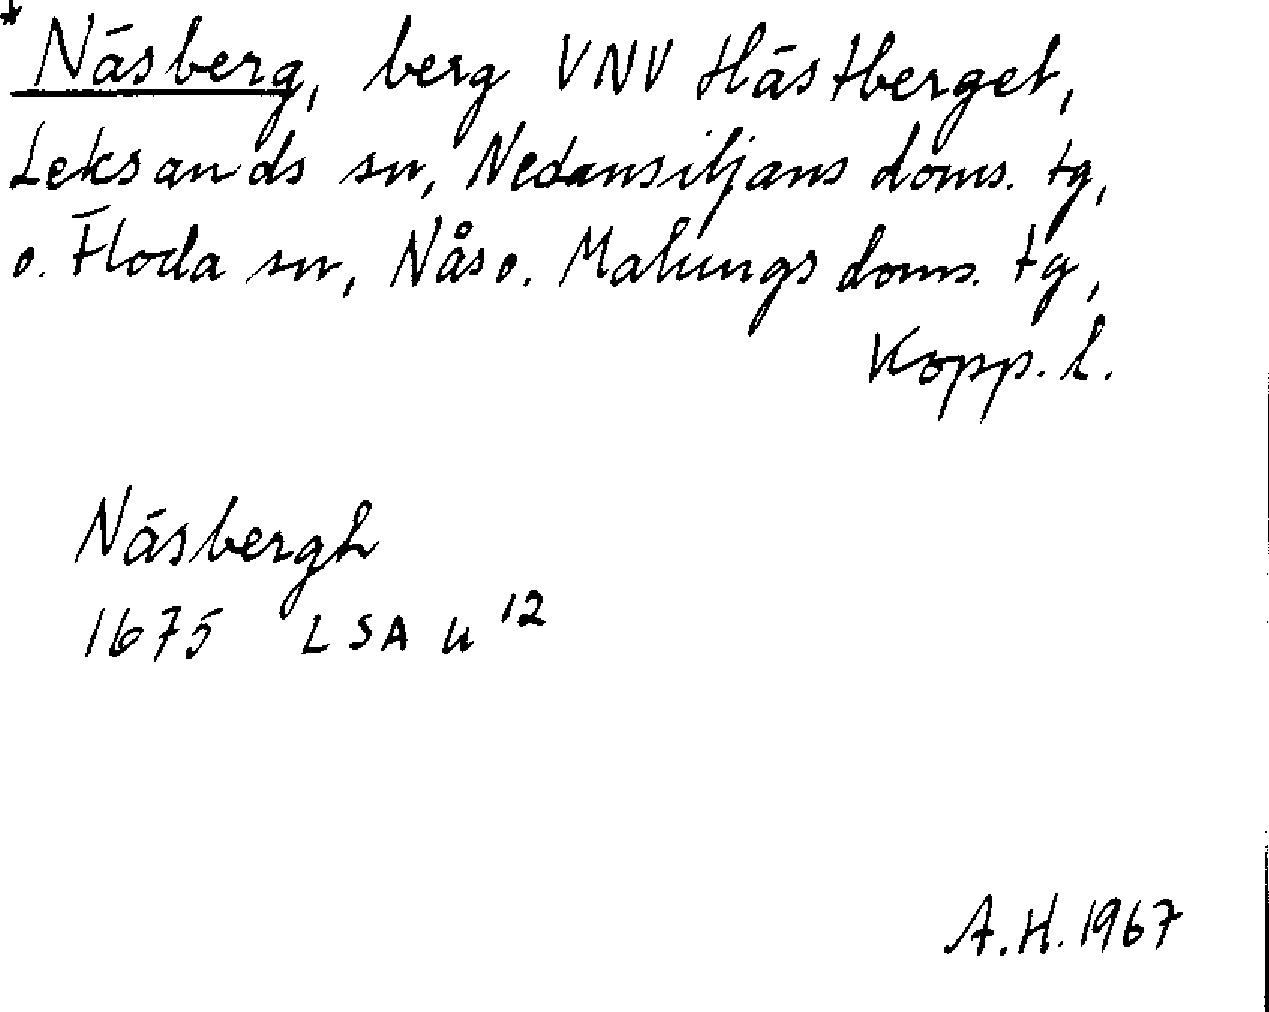 * Näsberg, berg VNV Hästberget,
Leksands sn, Nedansiljans doms. tg,
o. Floda sn, Nås o. Malungs doms. tg,
Kopp. l.
Näsbergh
1675 LSA u 12
A.H. 1967